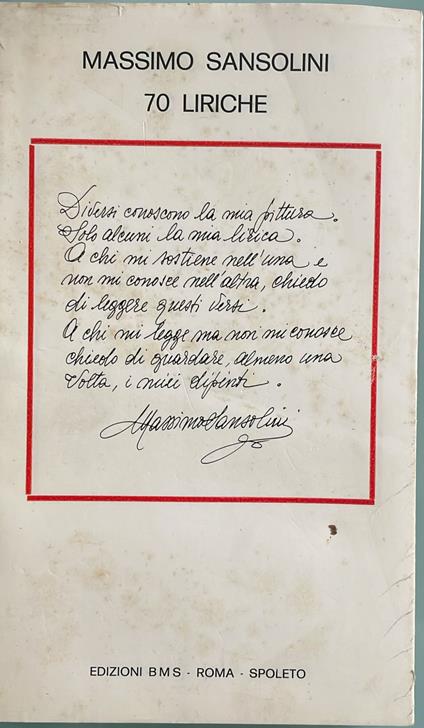 MASSIMO SANSOLINI
70 LIRICHE
Diversi conoscono la mia pittura.
Solo alcuni la mia lirica.
A chi mi sostiene nell'una e
non mi conosce nell'altra, chiedo
di leggere questi versi.
A chi mi legge ma non mi conosce
chiedo di guardare, almeno una
volta, i miei dipinti.
Massimo Sansolini
EDIZIONI BMS - ROMA - SPOLETO